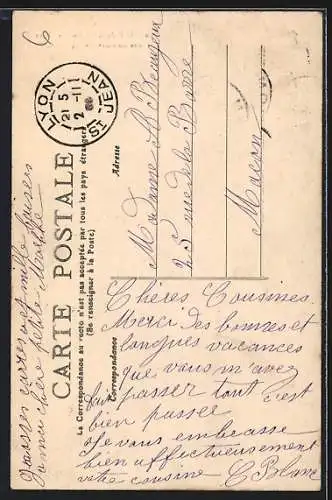 CARTE POSTALE
La Correspondance au recto n'est pas acceptée par tous les pays étrangers
(Se renseigner à la Poste)
Correspondance
Adresse
LYON
ST JEAN
21 5
2 -11
Madame A Beaujeau
25 rue de la Barre
Macon
Chères Cousines
Merci des bonnes et
longues vacances
que vous m'avez
fait passer tout c'est
bien passée
Je vous embrasse
bien affectueusement
votre cousine C Blanc
cartes et mille baisers
chère petite